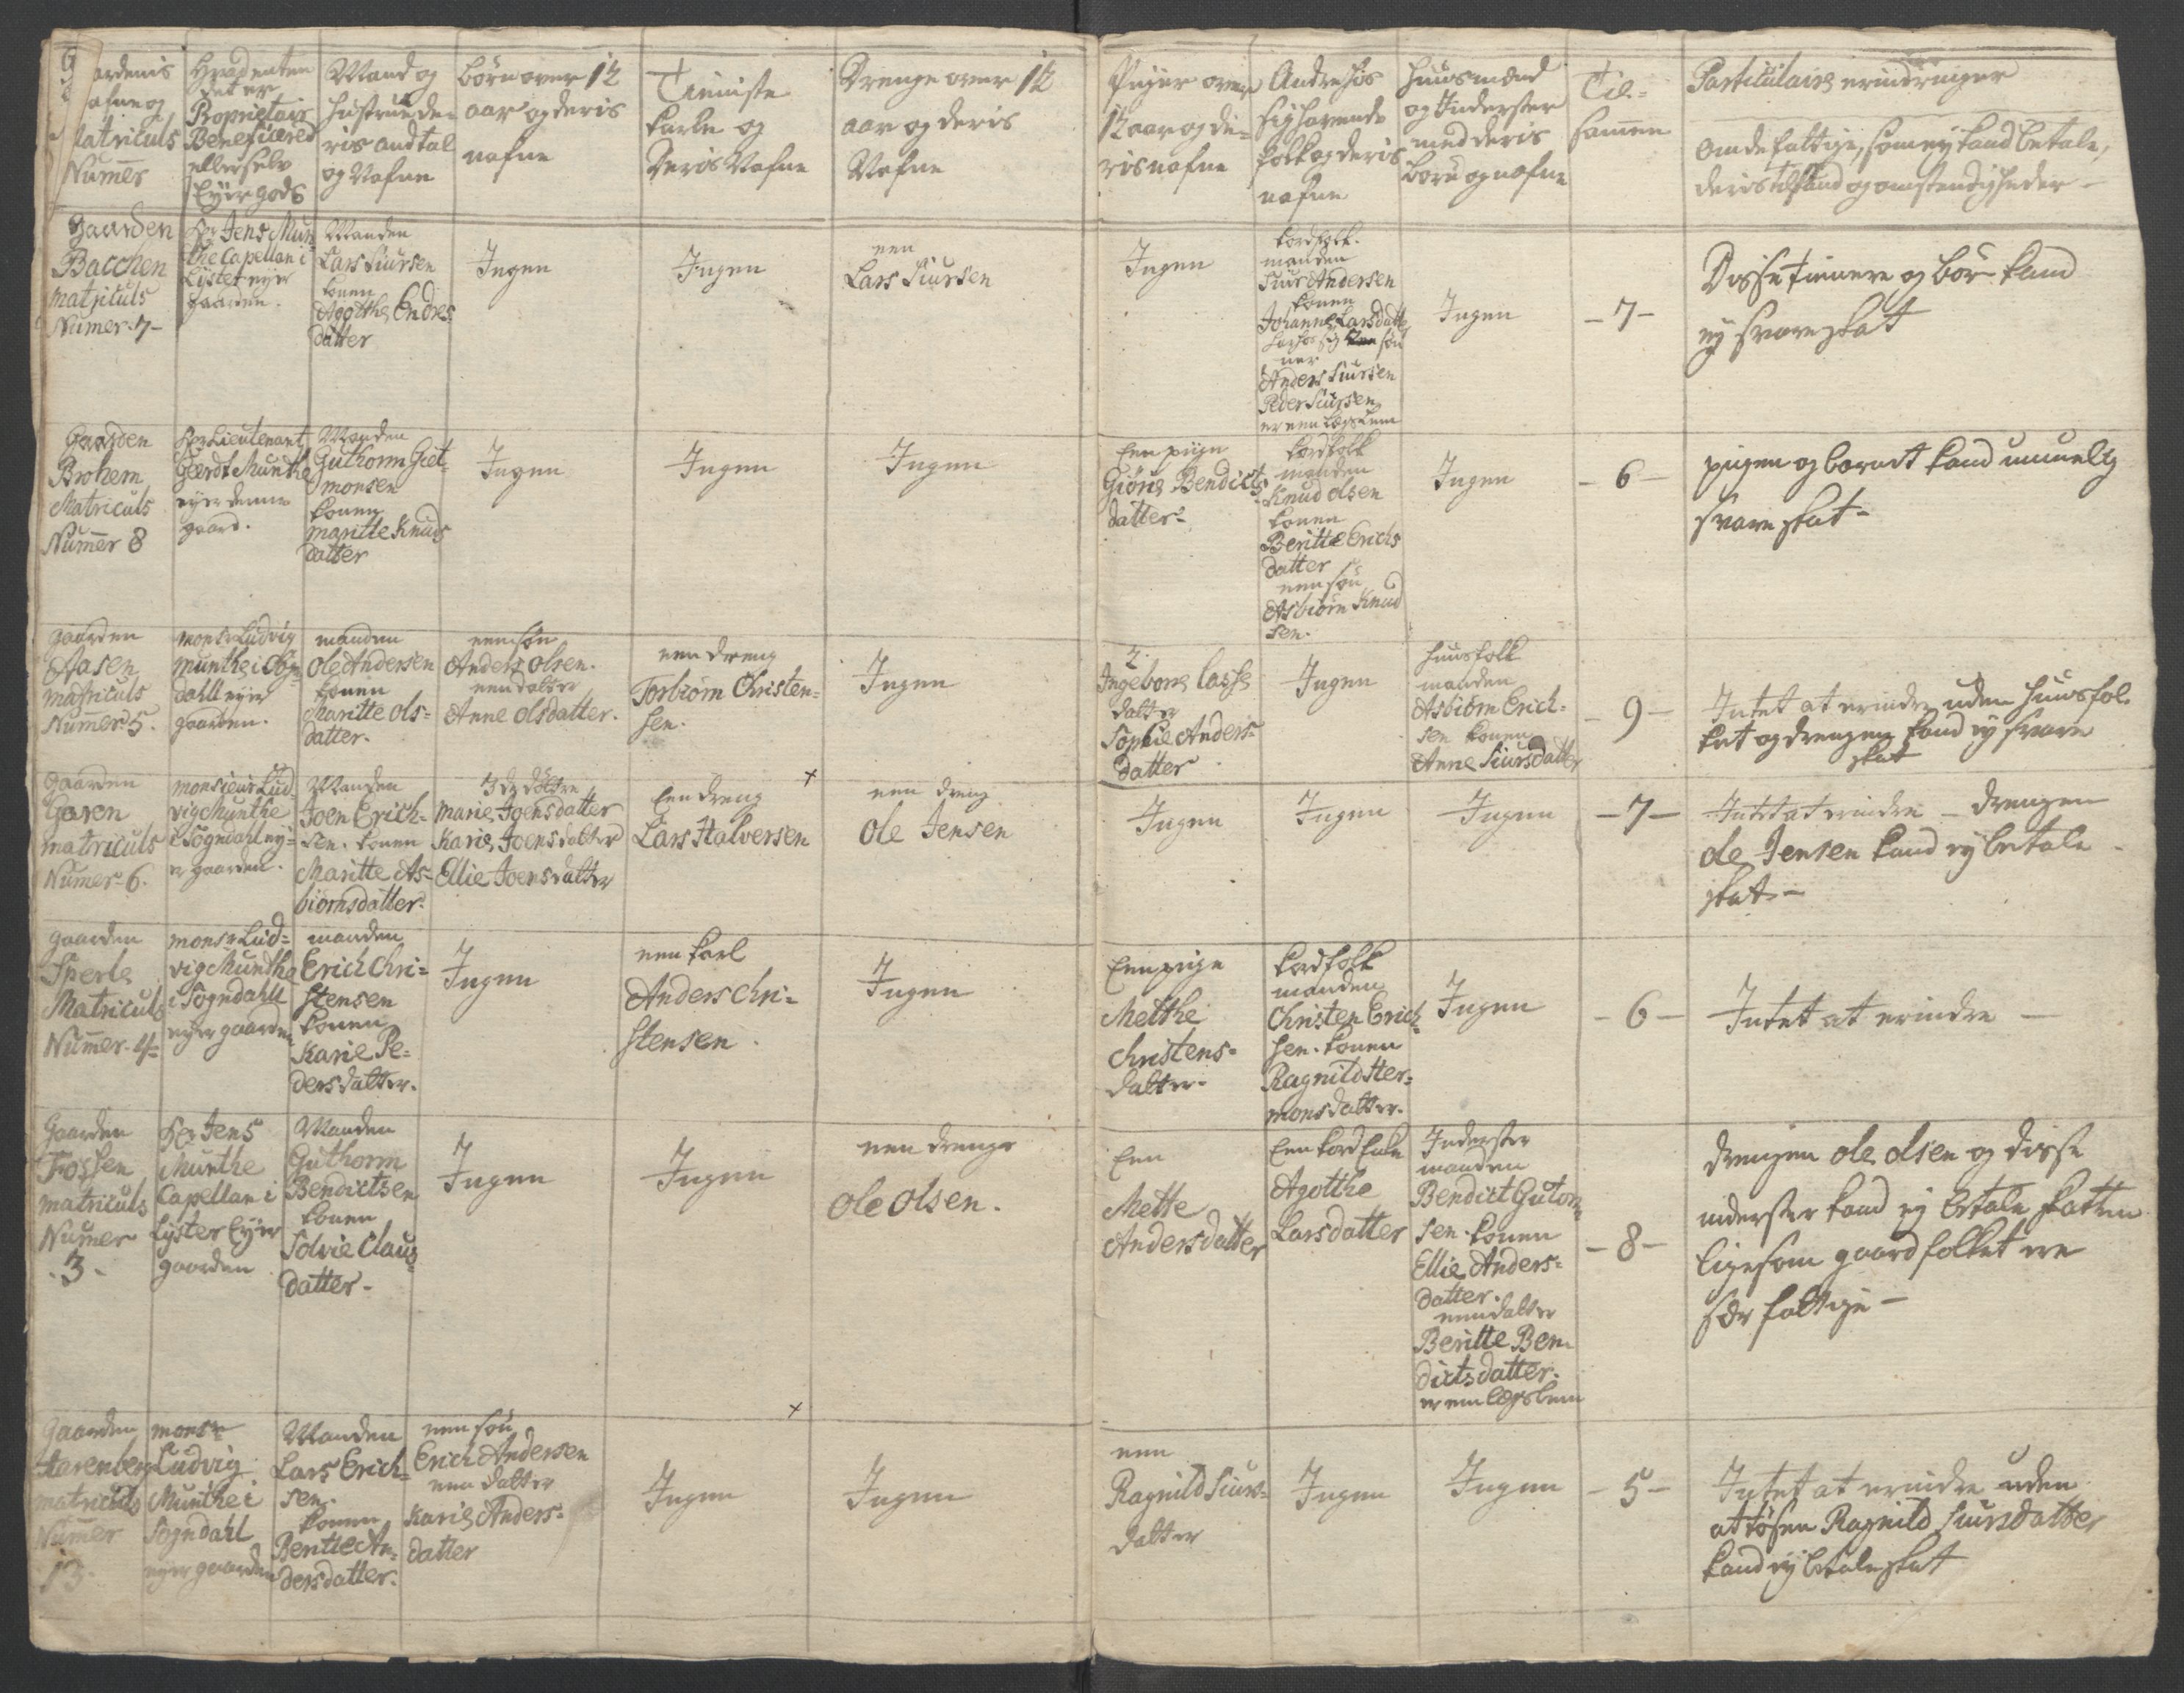 Gaardenis
Nafne og
Matriculs
Numer
Hvad enten
det er
Proprietair
Beneficered
eller selv
Eyer gods
Mand og
Hustrue de-
ris andtal
og Nafne
børn over 12
aar og deris
nafne
Tieniste
karle og
Deris Nafne
Drenge over 12
aar og deris
Nafne
Piiger over
12 aar og de-
ris nafne
Andre hos
sig havende
folk og deris
nafne
Huusmænd
og Inderster
med deris
børn og nafne
Til-
sammen
Particulaire erindringer
om de fattige, som ey kand betale,
deris tilstand og omstendigheder -
Gaarden
Bacchen
matriculs
Numer 7-
Hr Jens Mun
the Capellan i
Lyster eyer
gaarden.
Manden
Lars Siursen
konen
Agotthe Endres
datter
Ingen
Ingen
een
Lars Siursen
Ingen
kordfolk.
manden
Siur Andersen
konen
Johanne Larsdatte
har hos sig søn
ner
Anders Siursen
Peder Siursen
er een
Ingen
- 7 -
Disse tienere og børn kand
ej svare skat
Gaarden
Brohem
Matriculs
Numer 8
Hr Lieutenant
Gerdt Munthe
eyer denne
gaard.
Manden
Guthorm Giet-
monsen
konen
Maritte Knuds
datter
Ingen
Ingen
Ingen
Een piige
Giørie Bendicts
datter-
kordfolk
manden
Knud Olsen
konen
Beritte Erichs
datter
een søn
Asbiørn Knud
sen.
Ingen
- 6 -
piigen og barnet kand umuelig
svare skat -
gaarden
Aasen
matriculs
Numer 5.
monsr Ludvig
Munthe i Sogn-
dahll eyer
gaarden.
manden
Ole Andersen
konen
Maritte Ols-
datter.
een søn
Anders Olsen.
een datter
Anne Olsdatter.
een dreng
Torbiørn Christen-
sen.
Ingen
2.
Ingeborre Lasse
datter
Sophie Anders-
datter
Ingen
huusfolk
manden
Asbiørn Erich-
sen konen
Anne Siursdatter
- 9 -
Intet at erindre uden huusfol
ket og drengen kand ey svare
skat
gaarden
Garen
matriculs
Numer 6.
monsieur Lud
vig Munthe
i Sogndahl ey-
er gaarden.
Manden
Joen Erich-
sen. konen
Maritte As-
biørnsdatter.
3 de døttre
Marie Joensdatter
Karie Joensdatter
Ellie Joensdatter
Een dreng
Lars Halversen
een dreng
Ole Jensen
Ingen
Ingen
Ingen
- 7 -
Intet at erindre - drengen
ole Jensen kand ey betale
skat -
gaarden
Sperle
Matriculs
Numer 4
monsr Lud-
vig Munthe
i Sogndahll
eyer gaarden
manden
Erich Chri-
stensen
konen
Karie Pe-
dersdatter.
Ingen
een karl
Anders Chri-
stensen.
Ingen
Een piige
Metthe
Christens-
datter.
kordfolk
manden
Christen Erich
sen. konen
Ragnild Ster-
monsdatter.
Ingen
- 6 -
Intet at erindre -
Gaarden
Fossen
matriculs
Numer
. 3 -
Hr Jens
Munthe
Capellan i
Lyster Eyer
gaarden
Manden
Guthorm
Bendictsen
konen
Solvie Claus-
datter -
Ingen
Ingen
een drenge
Ole Olsen.
Een
Mette
Andersdatter
Agotthe
Larsdatter
Inderster
manden
Bendict Gutorm
sen. konen
Ellie Anders-
datter.
een datter
Beritte Ben
dictsdatter.
- 8 -
drengen ole olsen og disse
inderster kand ej betale skatten
ligesom gaardfolket ere
fattige -
Gaarden
matriculs
Numer
13.
monsr
Ludvig
Munthe i
Sogndahl
eyer gaarden
Manden
Lars Erich-
sen.
konen
Bentte An-
dersdatter.
een søn
Erich Andersen
een datter
Karie Anders-
datter
Ingen
Ingen
een
Ragnild Siurs-
datter
Ingen
Ingen
- 5 -
Intet at erindre uden
at tøsen Ragnild Siursdatter
kand ey betale skat